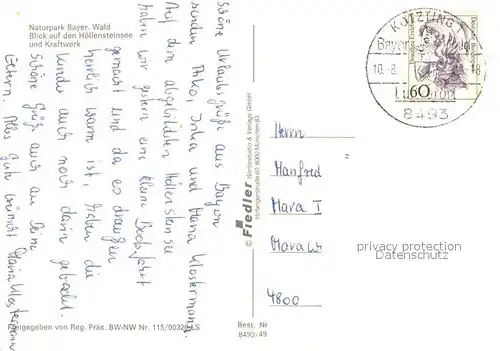 Naturpark Bayer. Wald
Blick auf den Höllensteinsee
und Kraftwerk
Schöne Urlaubsgrüße aus Bayern
senden Anka, Inka und Maria Klostermann.
Auf dem abgebildeten Höllensteinsee
haben wir gestern eine kleine Bootsfahrt
gemacht und da es draußen
herrlich warm ist, haben die
Kinder auch noch darin gebadet.
Schöne Grüße auch an Deine
Eltern. Alles Gute wünscht Maria Klostermann
Freigegeben von Reg. Präs. BW-NW Nr. 115/00326 LS
Best. Nr
8493/49
© Fiedler Werbestudio & Verlags GmbH
8000 München 83
KÖTZTING 1
Bayer
10.-8.
-18
Luftkurort
8493
Deutsche Bundespost
60
Herrn
Manfred
Mara I
Mara
4800
privacy protection
watermark